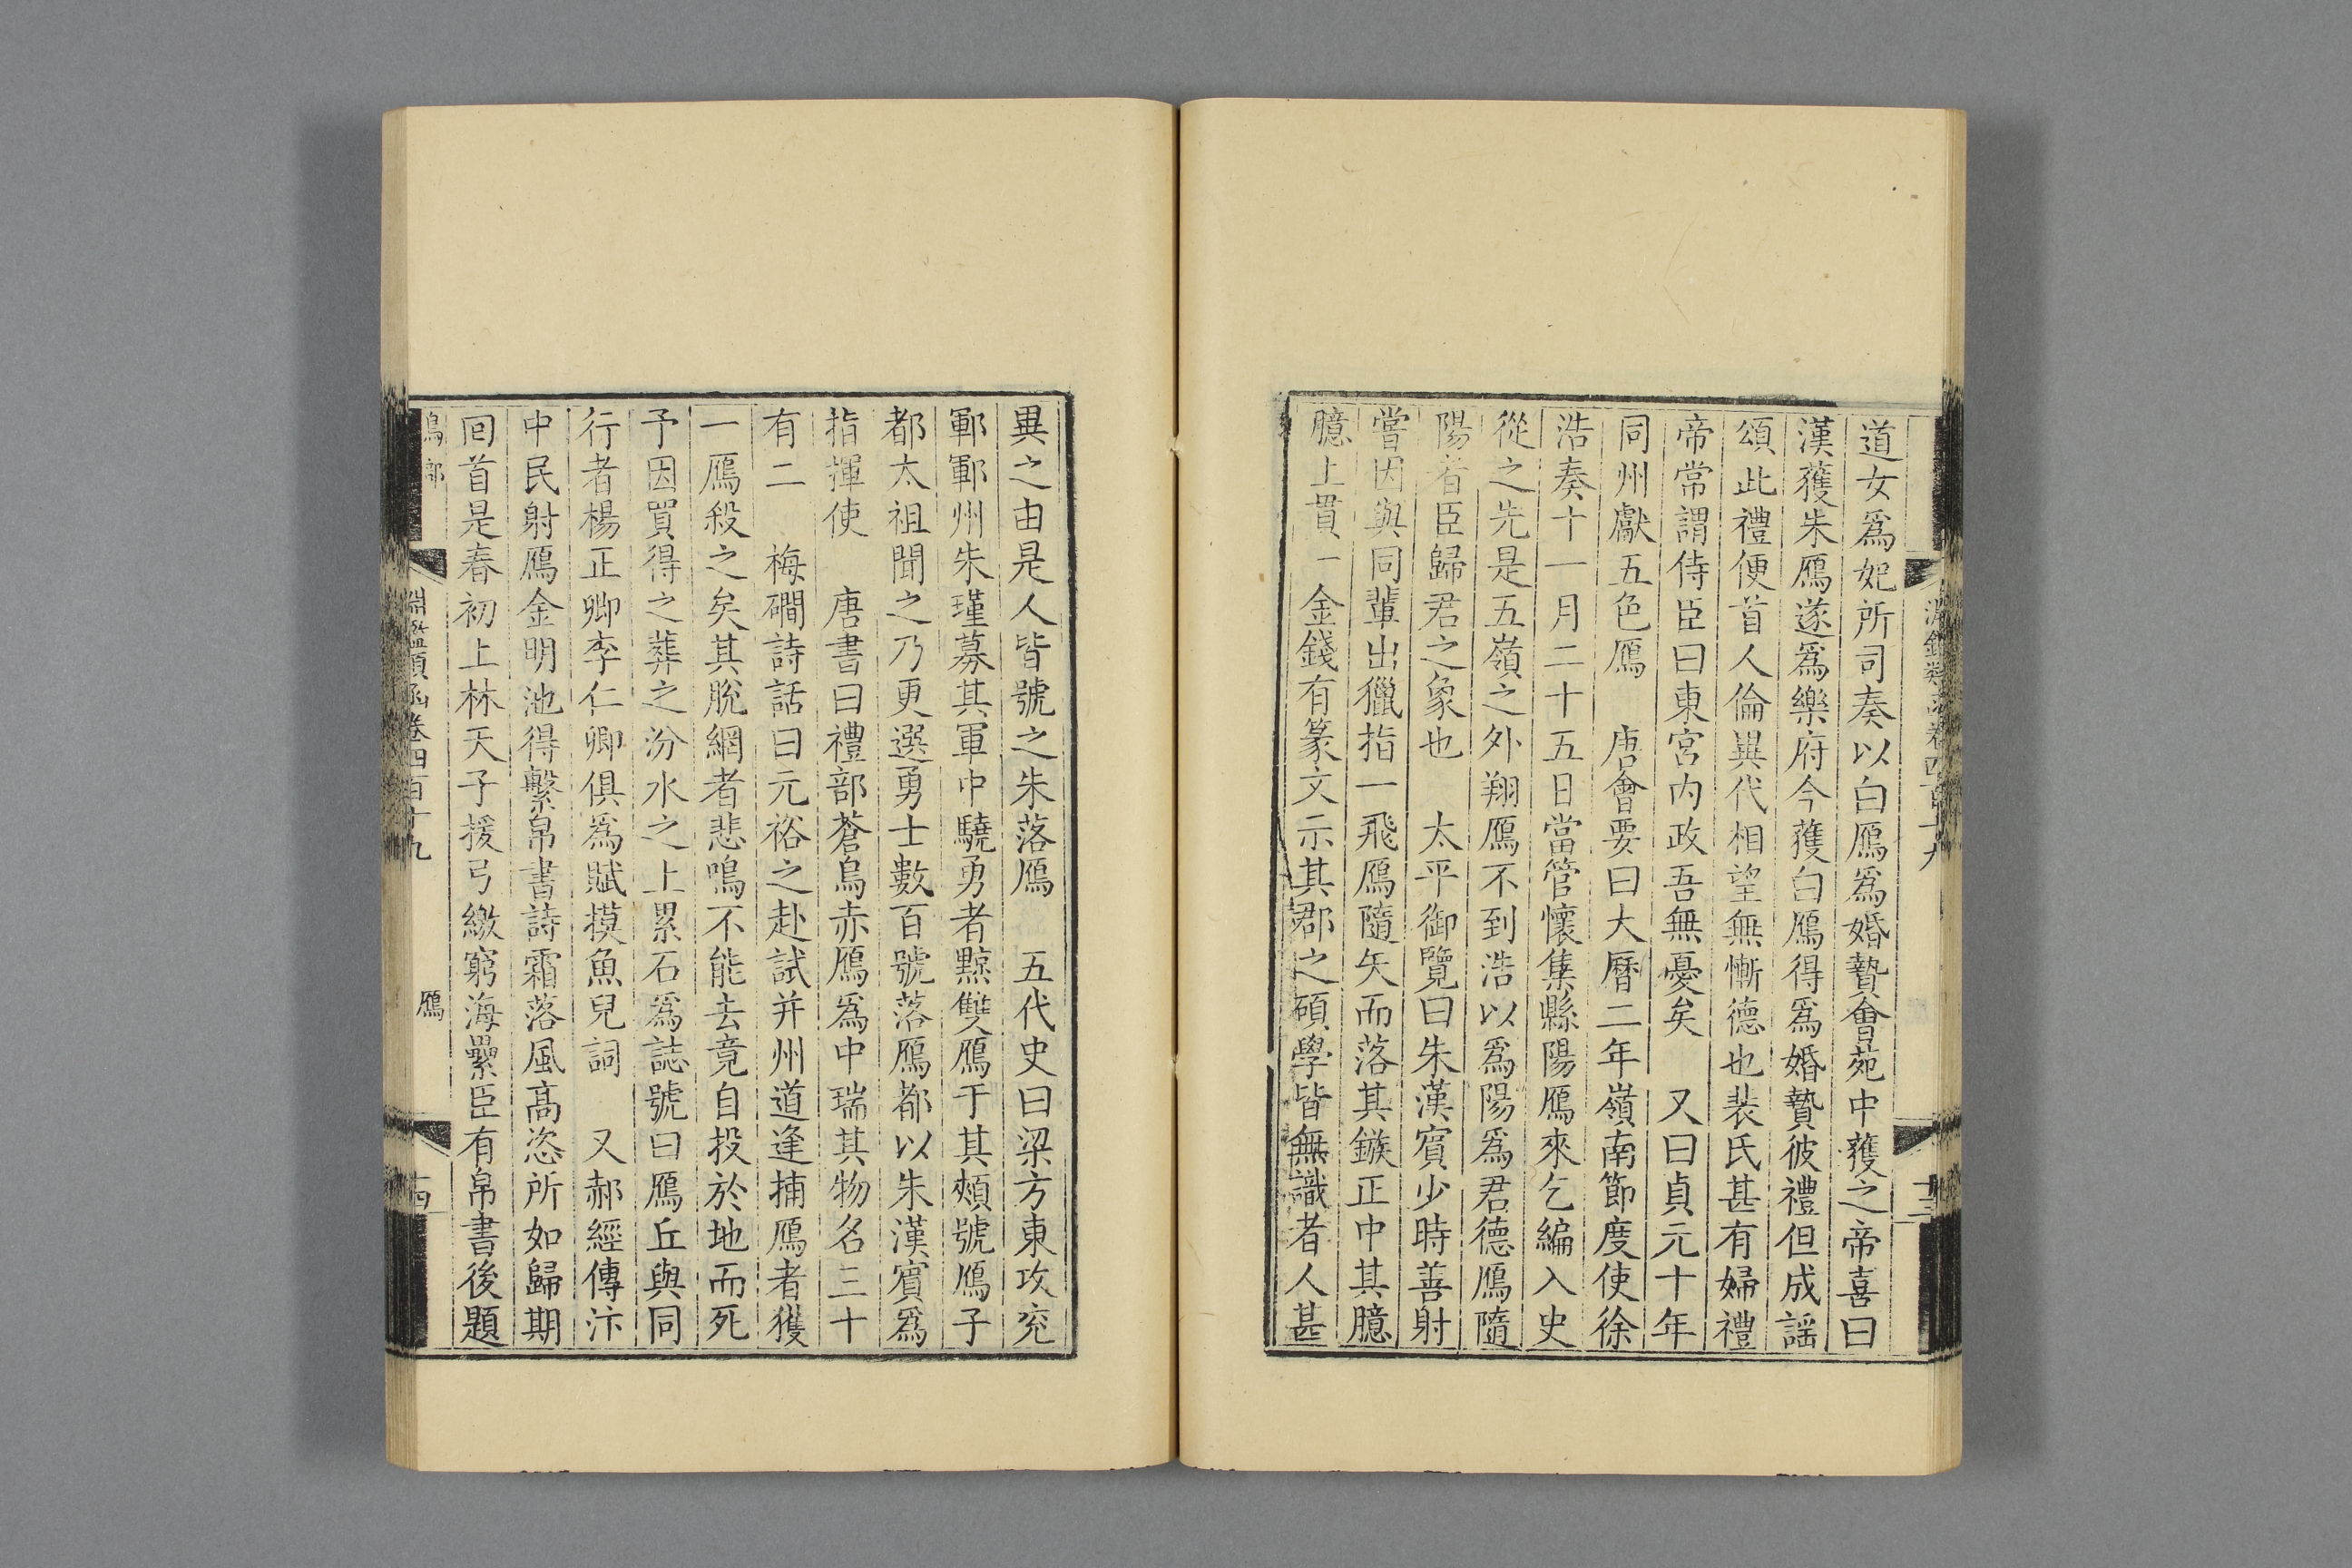 道女爲妃所司奏以白鴈爲婚贄會苑中獲之帝喜曰
漢獲朱鴈遂爲樂府今獲白鴈得爲婚贄彼禮但成謡
頌此禮便首人倫異代相望無慚德也裴氏甚有婦禮
帝常謂侍臣曰東宮内政吾無憂矣 又曰貞元十年
同州獻五色鴈 唐會要曰大曆二年嶺南節度使徐
浩奏十一月二十五日當管懷集縣陽鴈來乞編入史
從之先是五嶺之外翔鴈不到浩以爲陽爲君德鴈隨
陽者臣歸君之象也 太平御覽曰朱漢賓少時善射
嘗因與同輩出獵指一飛鴈隨矢而落其鏃正中其臆
臆上貫一金錢有篆文示其郡之碩學皆無識者人甚
異之由是人皆號之朱落鴈 五代史曰梁方東攻兖
鄆鄆州朱瑾募其軍中驍勇者黥雙鴈于其頰號鴈子
都太祖聞之乃更選勇士數百號落鴈都以朱漢賓爲
指揮使 唐書曰禮部蒼烏赤鴈爲中瑞其物名三十
有二 梅磵詩話曰元裕之赴試并州道逢捕鴈者獲
一鴈殺之矣其脫網者悲鳴不能去竟自投於地而死
予因買得之葬之汾水之上累石爲誌號曰鴈丘與同
行者楊正卿李仁卿俱爲賦摸魚兒詞 又郝經傳汴
中民射鴈金明池得繫帛書詩霜落風高恣所如歸期
回首是春初上林天子援弓繳窮海纍臣有帛書後題
鳥部
淵鑑類函卷四百十九
鴈
十四